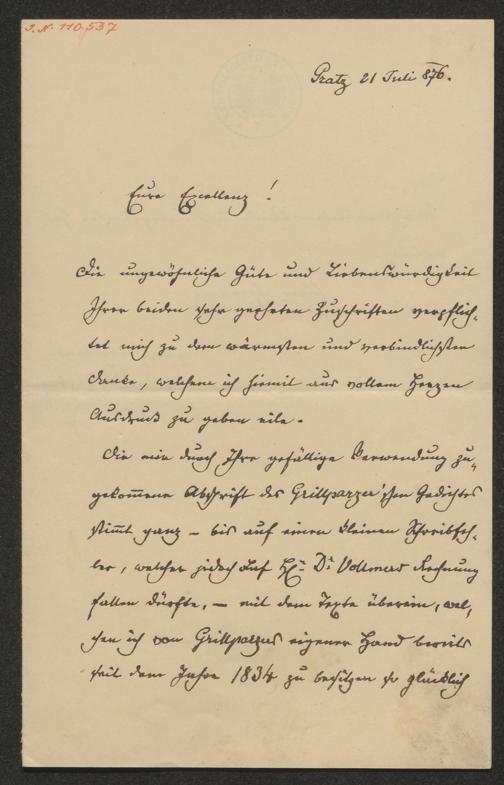 J. N. 110.537
Gratz 21 Juli 876.
Eure Excellenz!
Die ungewöhnliche Güte und Liebenswürdigkeit
Ihrer beiden sehr geehrten Zuschriften verpflich-
tet mich zu dem wärmsten und verbindlichsten
Danke, welchem ich hiemit aus vollem Herzen
Ausdruck zu geben eile.
Die mir durch Ihre gefällige Verwendung zu-
gekommene Abschrift des Grillparzer'schen Gedichtes
stimmt ganz – bis auf einen kleinen Schreibfeh-
ler, welcher jedoch auf H. Dr. Vollmers Rechnung
fallen dürfte, – mit dem Texte überein, wel-
chen ich von Grillparzers eigener Hand bereits
seit dem Jahre 1834 zu besitzen so glücklich